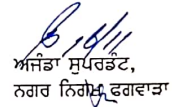 ਅਜੰਡਾ ਸੁਪਰਡੰਟ,
ਨਗਰ ਨਿਗਮ ਫਗਵਾੜਾ